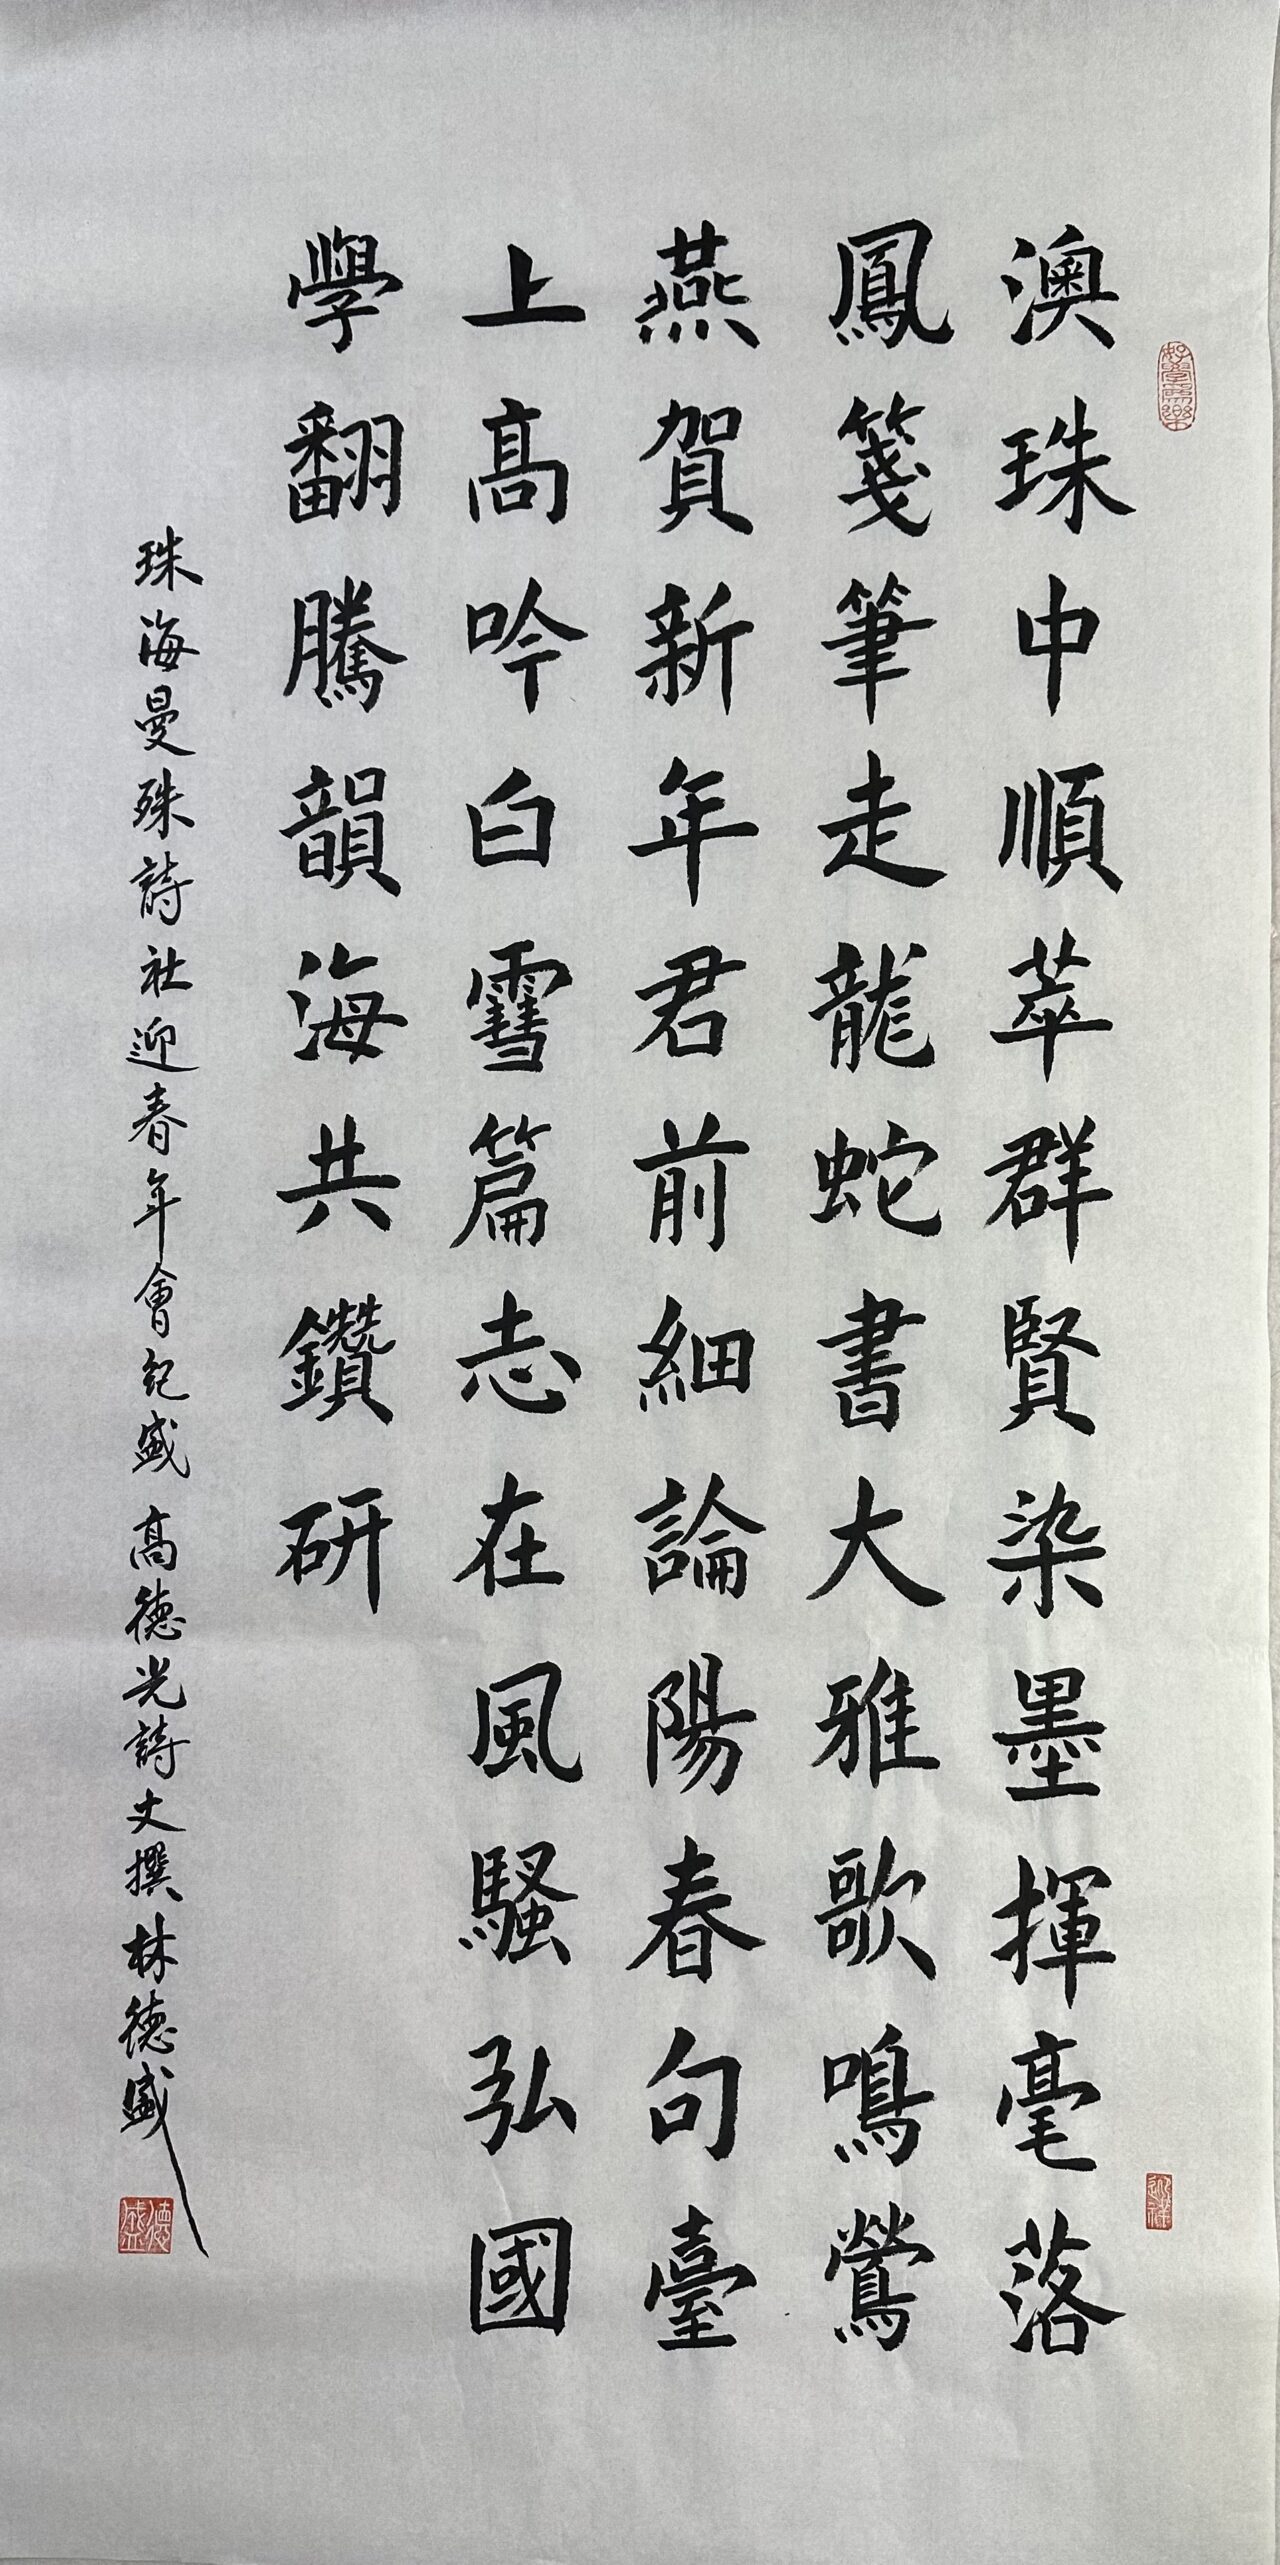 澳珠中順萃群賢染墨揮毫落
鳳箋筆走龍蛇書大雅歌鳴鶯
燕賀新年君前細論陽春句臺
上高吟白雪篇志在風騷弘國
學翻騰韻海共鑽研
珠海曼殊詩社迎春年會紀盛 高德光詩丈撰 林德盛
好學為樂
迎祥
德盛